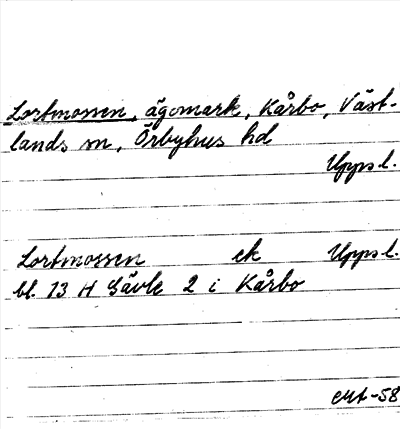 Lortmossen, ägomark, Kårbo, Väst-
lands sn, Örbyhus hd
Uppsl.
Lortmossen ek Uppsl.
bl. 13 H Gävle 2 i Kårbo
-58